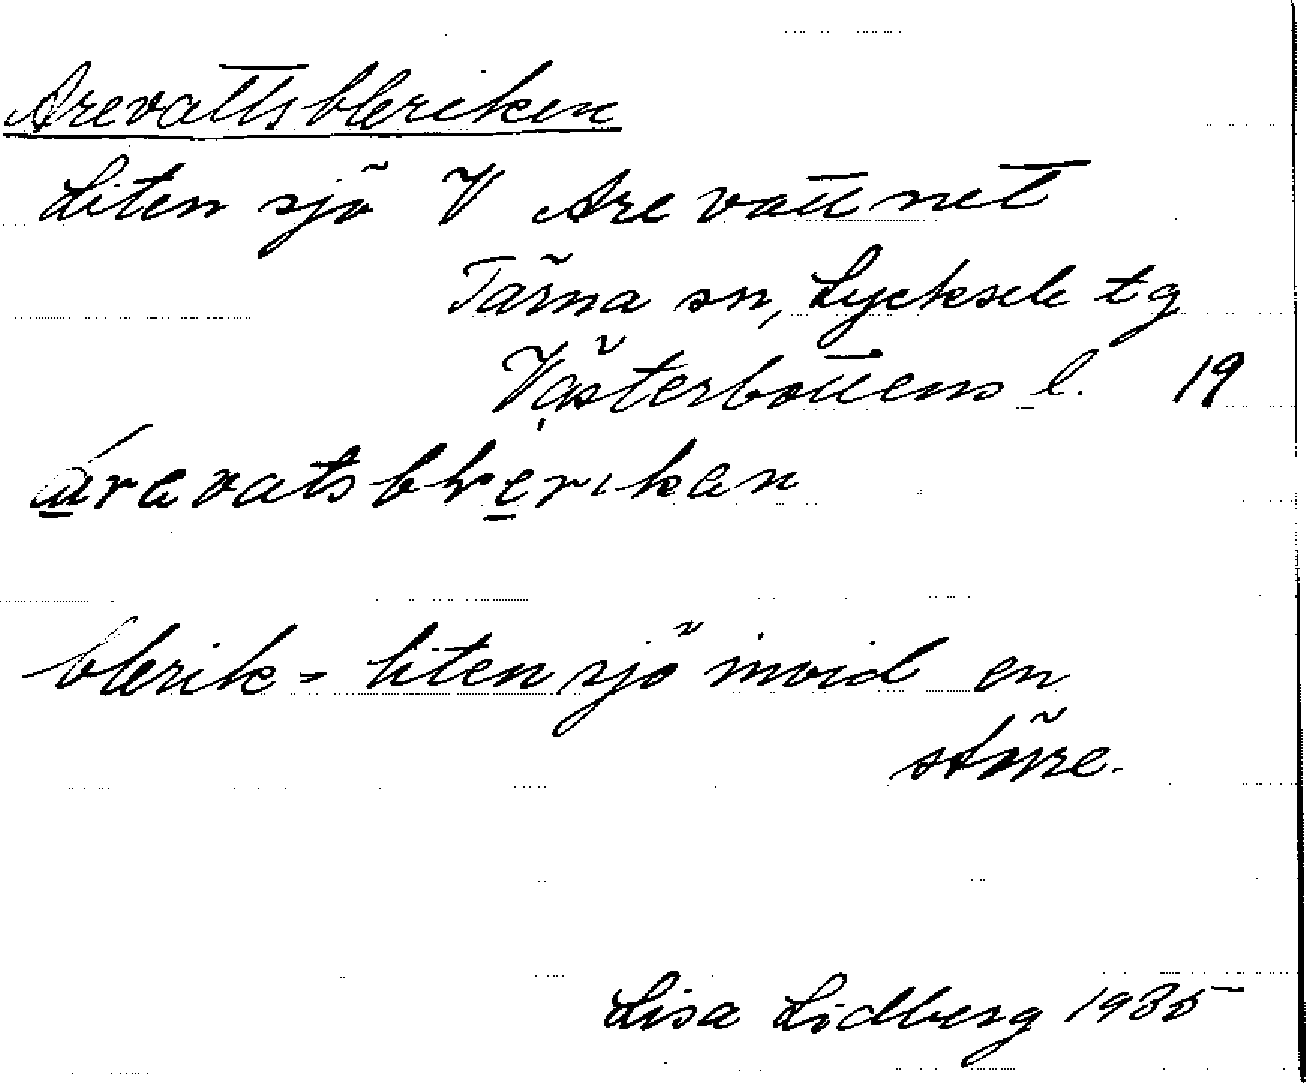 Arevattsbleriken
Liten sjö V Arevattnet
Tärna sn, Lycksele tg
Västerbottens l. 19
blerik = liten sjö invid en
större.
Lisa Lidberg 1935